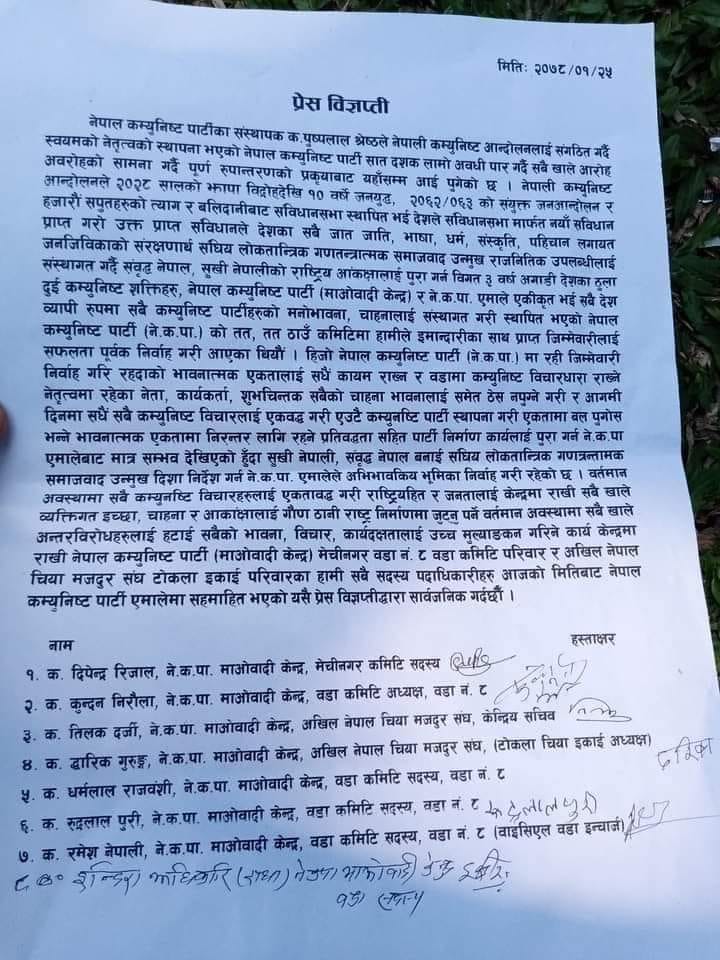 मितिः २०७८/०१/२५
प्रेस विज्ञप्ती
नेपाल कम्युनिष्ट पार्टीका संस्थापक क.पुष्पलाल श्रेष्ठले नेपाली कम्युनिष्ट आन्दोलनलाई संगठित गर्दै
स्वयमको नेतृत्वको स्थापना भएको नेपाल कम्युनिष्ट पार्टी सात दशक लामो अवधी पार गर्दै सबै खाले आरोह
अवरोहको सामना गर्दै पूर्ण रुपान्तरणको प्रकृयाबाट यहाँसम्म आई पुगेको छ । नेपाली कम्युनिष्ट
आन्दोलनले २०२८ सालको झापा विद्रोहदेखि १० वर्षे जनयुद्ध, २०६२/०६३ को संयुक्त जनआन्दोलन र
हजारौं सपुतहरुको त्याग र बलिदानीबाट संविधानसभा स्थापित भई देशले संविधानसभा मार्फत नयाँ संविधान
प्राप्त गरो उक्त प्राप्त संविधानले देशका सबै जात जाति, भाषा, धर्म, संस्कृति, पहिचान लगायत
जनजिविकाको संरक्षणार्थ सघिय लोकतान्त्रिक गणतन्त्रात्मक समाजवाद उन्मुख राजनितिक उपलब्धीलाई
संस्थागत गर्दै संवृद्ध नेपाल, सुखी नेपालीको राष्ट्रिय आंकक्षालाई पुरा गर्न विगत ३ वर्ष अगाडी देशका ठुला
दुई कम्युनिष्ट शक्तिहरु, नेपाल कम्युनिष्ट पार्टी (माओवादी केन्द्र) र ने.क.पा. एमाले एकीकृत भई सबै देश
व्यापी रुपमा सबै कम्युनिष्ट पार्टीहरुको मनोभावना, चाहनालाई संस्थागत गरी स्थापित भएको नेपाल
कम्युनिष्ट पार्टी (ने.क.पा.) को तत, तत ठाउँ कमिटिमा हामीले इमान्दारीका साथ प्राप्त जिम्मेवारीलाई
सफलता पूर्वक निर्वाह गरी आएका थियौं । हिजो नेपाल कम्युनिष्ट पार्टी (ने.क.पा.) मा रही जिम्मेवारी
निर्वाह गरि रहदाको भावनात्मक एकतालाई सधैं कायम राख्न र वडामा कम्युनिष्ट विचारधारा राख्ने
नेतृत्वमा रहेका नेता, कार्यकर्ता, शुभचिन्तक सबैको चाहना भावनालाई समेत ठेस नपुग्ने गरी र आगमी
दिनमा सधैं सबै कम्युनिष्ट विचारलाई एकवद्ध गरी एउटै कम्युनष्टि पार्टी स्थापना गरी एकतामा बल पुगोस
भन्ने भावनात्मक एकतामा निरन्तर लागि रहने प्रतिवद्धता सहित पार्टी निर्माण कार्यलाई पुरा गर्न ने.क.पा
एमालेबाट मात्र सम्भव देखिएको हुँदा सुखी नेपाली, संवृद्ध नेपाल बनाई सघिय लोकतान्त्रिक गणत्रन्तामक
समाजवाद उन्मुख दिशा निर्देश गर्न ने.क.पा. एमालेले अभिभावकिय भूमिका निर्वाह गरी रहेको छ । वर्तमान
अवस्थामा सबै कम्युनष्टि विचारहरुलाई एकतावद्ध गरी राष्ट्रियहित र जनतालाई केन्द्रमा राखी सबै खाले
व्यक्तिगत इच्छा, चाहना र आकांक्षालाई गौण ठानी राष्ट्र निर्माणमा जुट्नु पर्ने वर्तमान अवस्थामा सबै खाले
अन्तरविरोधहरुलाई हटाई सबैको भावना, विचार, कार्यदक्षतालाई उच्च मुल्याङकन गरिने कार्य केन्द्रमा
राखी नेपाल कम्युनिष्ट पार्टी (माओवादी केन्द्र) मेचीनगर वडा नं. ८ वडा कमिटि परिवार र अखिल नेपाल
चिया मजदुर संघ टोकला इकाई परिवारका हामी सबै सदस्य पदाधिकारीहरु आजको मितिबाट नेपाल
कम्युनिष्ट पार्टी एमालेमा सहमाहित भएको यसै प्रेस विज्ञप्तीद्वारा सार्वजनिक गर्दछौं ।
नाम हस्ताक्षर
१. क. दिपेन्द्र रिजाल, ने.क.पा. माओवादी केन्द्र, मेचीनगर कमिटि सदस्य
२. क. कुन्दन निरौला, ने.क.पा. माओवादी केन्द्र, वडा कमिटि अध्यक्ष, वडा नं. ८
३. क. तिलक दर्जी, ने.क.पा. माओवादी केन्द्र, अखिल नेपाल चिया मजदुर संघ, केन्द्रिय सचिव
४. क. द्वारिक गुरुङ, ने.क.पा. माओवादी केन्द्र, अखिल नेपाल चिया मजदुर संघ, (टोकला चिया इकाई अध्यक्ष)
५. क. धर्मलाल राजवंशी, ने.क.पा. माओवादी केन्द्र, वडा कमिटि सदस्य, वडा नं. ८
६. क. रुद्रलाल पुरी, ने.क.पा. माओवादी केन्द्र, वडा कमिटि सदस्य, वडा नं. ८ रुद्रलाल पुरी
७. क. रमेश नेपाली, ने.क.पा. माओवादी केन्द्र, वडा कमिटि सदस्य, वडा नं. ८ (वाइसिएल वडा इन्चार्ज)
८ क॰ इन्दिरा अधिकारि (राधा) नेकपा माओवादी केन्द्र
वडा सदस्य